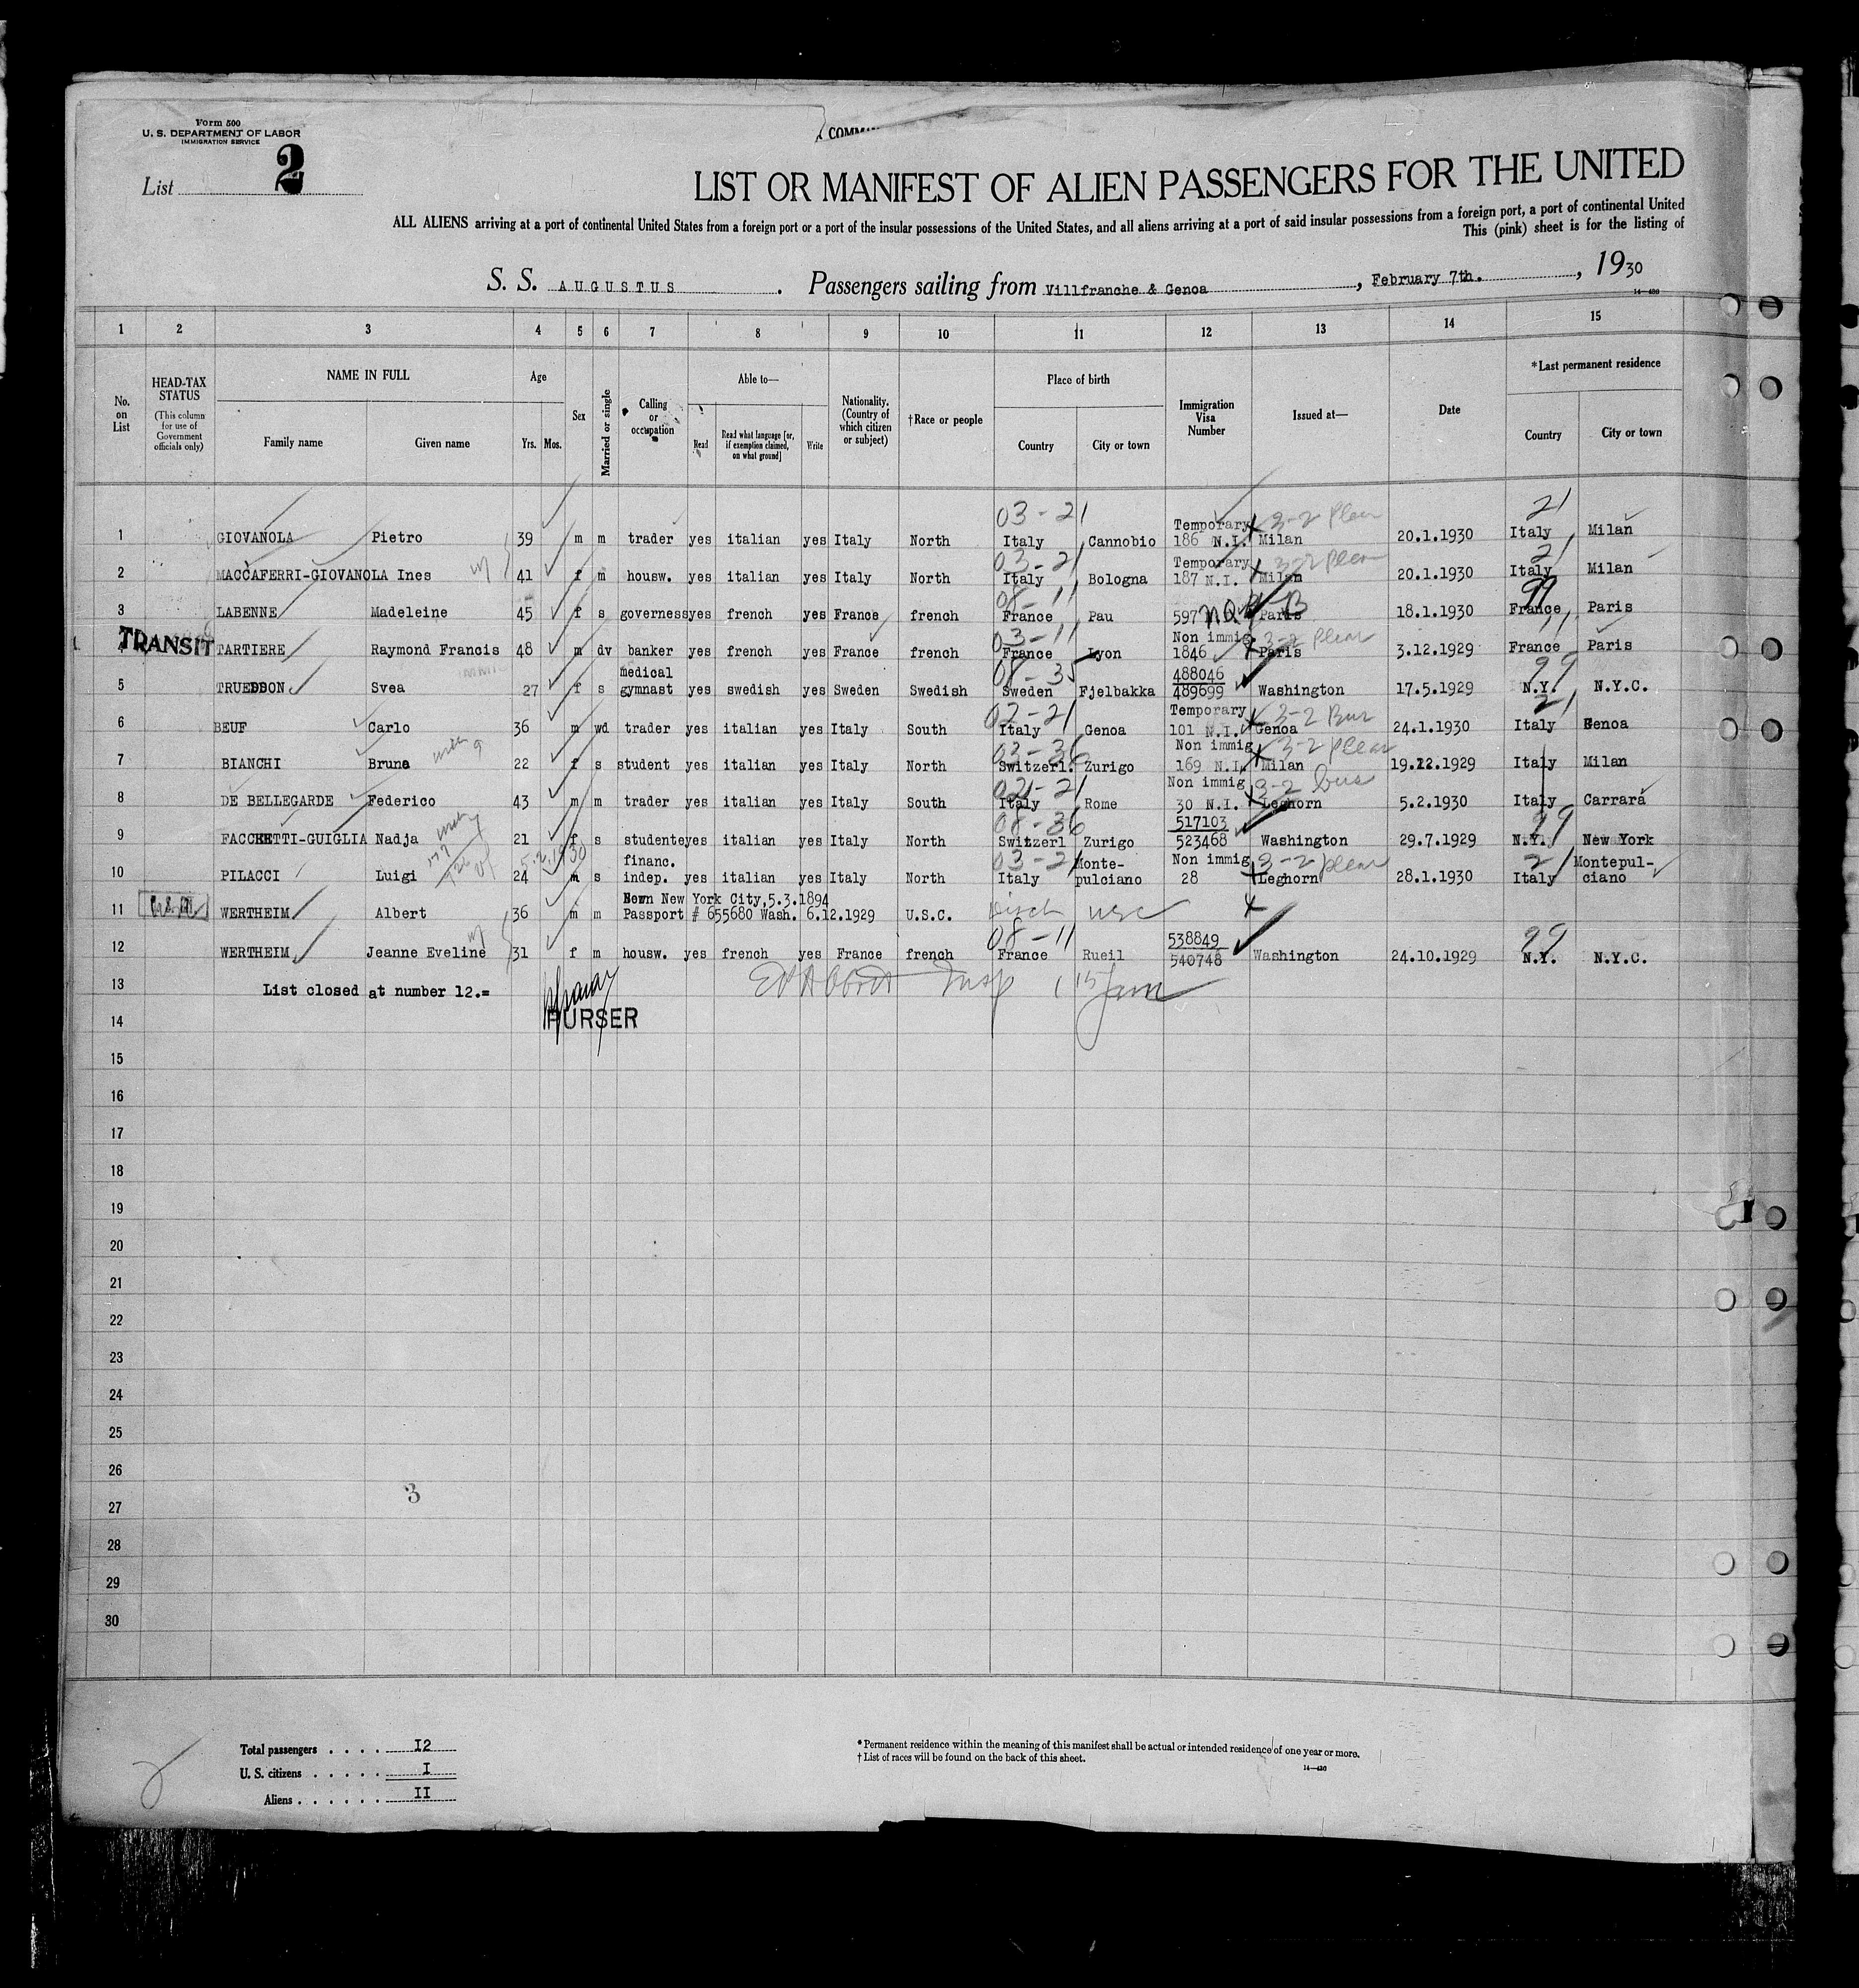 Form 500
U. S. DEPARTMENT OF LABOR
IMMIGRATION SERVICE
List 2
LIST OR MANIFEST OF ALIEN PASSENGERS FOR THE UNITED
ALL ALIENS arriving at a port of continental United States from a foreign port or a port of the insular possessions of the United States, and all aliens arriving at a port of said insular possessions from a foreign port, a port of continental United
This (pink) sheet is for the listing of
S. S. AUGUSTUS. Passengers sailing from Villfranche & Genoa, February 7th., 1930
14-430
1 2 3 4 5 6 7 8 9 10 11 12 13 14 15
No. on List HEAD-TAX STATUS (This column for use of Government officials only) NAME IN FULL Family name Given name Age Yrs. Mos. Sex Married or single Calling or occupation Able to— Read Read what language [or, if exemption claimed, on what ground] Write Nationality. (Country of which citizen or subject) †Race or people Place of birth Country City or town Immigration Visa Number Issued at— Date *Last permanent residence Country City or town
03-21 Temporary 3-2 Pleas 21
1 GIOVANOLA Pietro 39 m m trader yes italian yes Italy North Italy Cannobio 186 N.I. Milan 20.1.1930 Italy Milan
03-21 Temporary 3-2 Pleas 21
2 MACCAFERRI-GIOVANOLA Ines 41 f m housw. yes italian yes Italy North Italy Bologna 187 N.I. Milan 20.1.1930 Italy Milan
08-11 99
3 LABENNE Madeleine 45 f s governess yes french yes France french France Pau 597 N.Q. Paris 18.1.1930 France Paris
03-11 Non immig 3-2 Pleas 11
4 TRANSIT TARTIERE Raymond Francis 48 m dv banker yes french yes France french France Lyon 1846 Paris 3.12.1929 France Paris
medical 08-35 488046 99
5 TRUEDSON Svea 27 f s gymnast yes swedish yes Sweden Swedish Sweden Fjelbakka 489699 Washington 17.5.1929 N.Y. N.Y.C.
02-21 Temporary 3-2 Bus 21
6 BEUF Carlo 36 m wd trader yes italian yes Italy South Italy Genoa 101 N.I. Genoa 24.1.1930 Italy Genoa
03-36 Non immig 3-2 Pleas
7 BIANCHI Bruna 22 f s student yes italian yes Italy North Switzerl. Zurigo 169 N.I. Milan 19.12.1929 Italy Milan
02-21 Non immig 3-2 bus
8 DE BELLEGARDE Federico 43 m m trader yes italian yes Italy South Italy Rome 30 N.I. Leghorn 5.2.1930 Italy Carrara
08-36 517103 99
9 FACCHETTI-GUIGLIA Nadja 21 f s studente yes italian yes Italy North Switzerl Zurigo 523468 Washington 29.7.1929 N.Y. New York
5.2.1930 financ. 03-21 Monte- Non immig 3-2 pleas 21 Montepul-
10 PILACCI Luigi 24 m s indep. yes italian yes Italy North Italy pulciano 28 Leghorn 28.1.1930 Italy ciano
Born New York City,5.3.1894
11 WERTHEIM Albert 36 m m Passport # 655680 Wash. 6.12.1929 U.S.C. Disch usc
08-11 538849 99
12 WERTHEIM Jeanne Eveline 31 f m housw. yes french yes France french France Rueil 540748 Washington 24.10.1929 N.Y. N.Y.C.
13 List closed at number 12.=
PURSER
14
15
16
17
18
19
20
21
22
23
24
25
26
27
3
28
29
30
Total passengers . . . . I2
U. S. citizens . . . . . I
Aliens . . . . . . II
* Permanent residence within the meaning of this manifest shall be actual or intended residence of one year or more.
† List of races will be found on the back of this sheet.
14-430